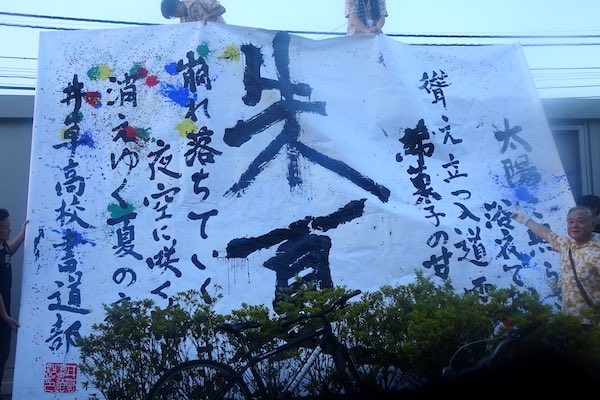 太陽
聳え立つ入道雲
綿菓子の甘
朱夏
崩れ落ちていく
夜空に咲く
消えゆく一夏の
井草高校書道部